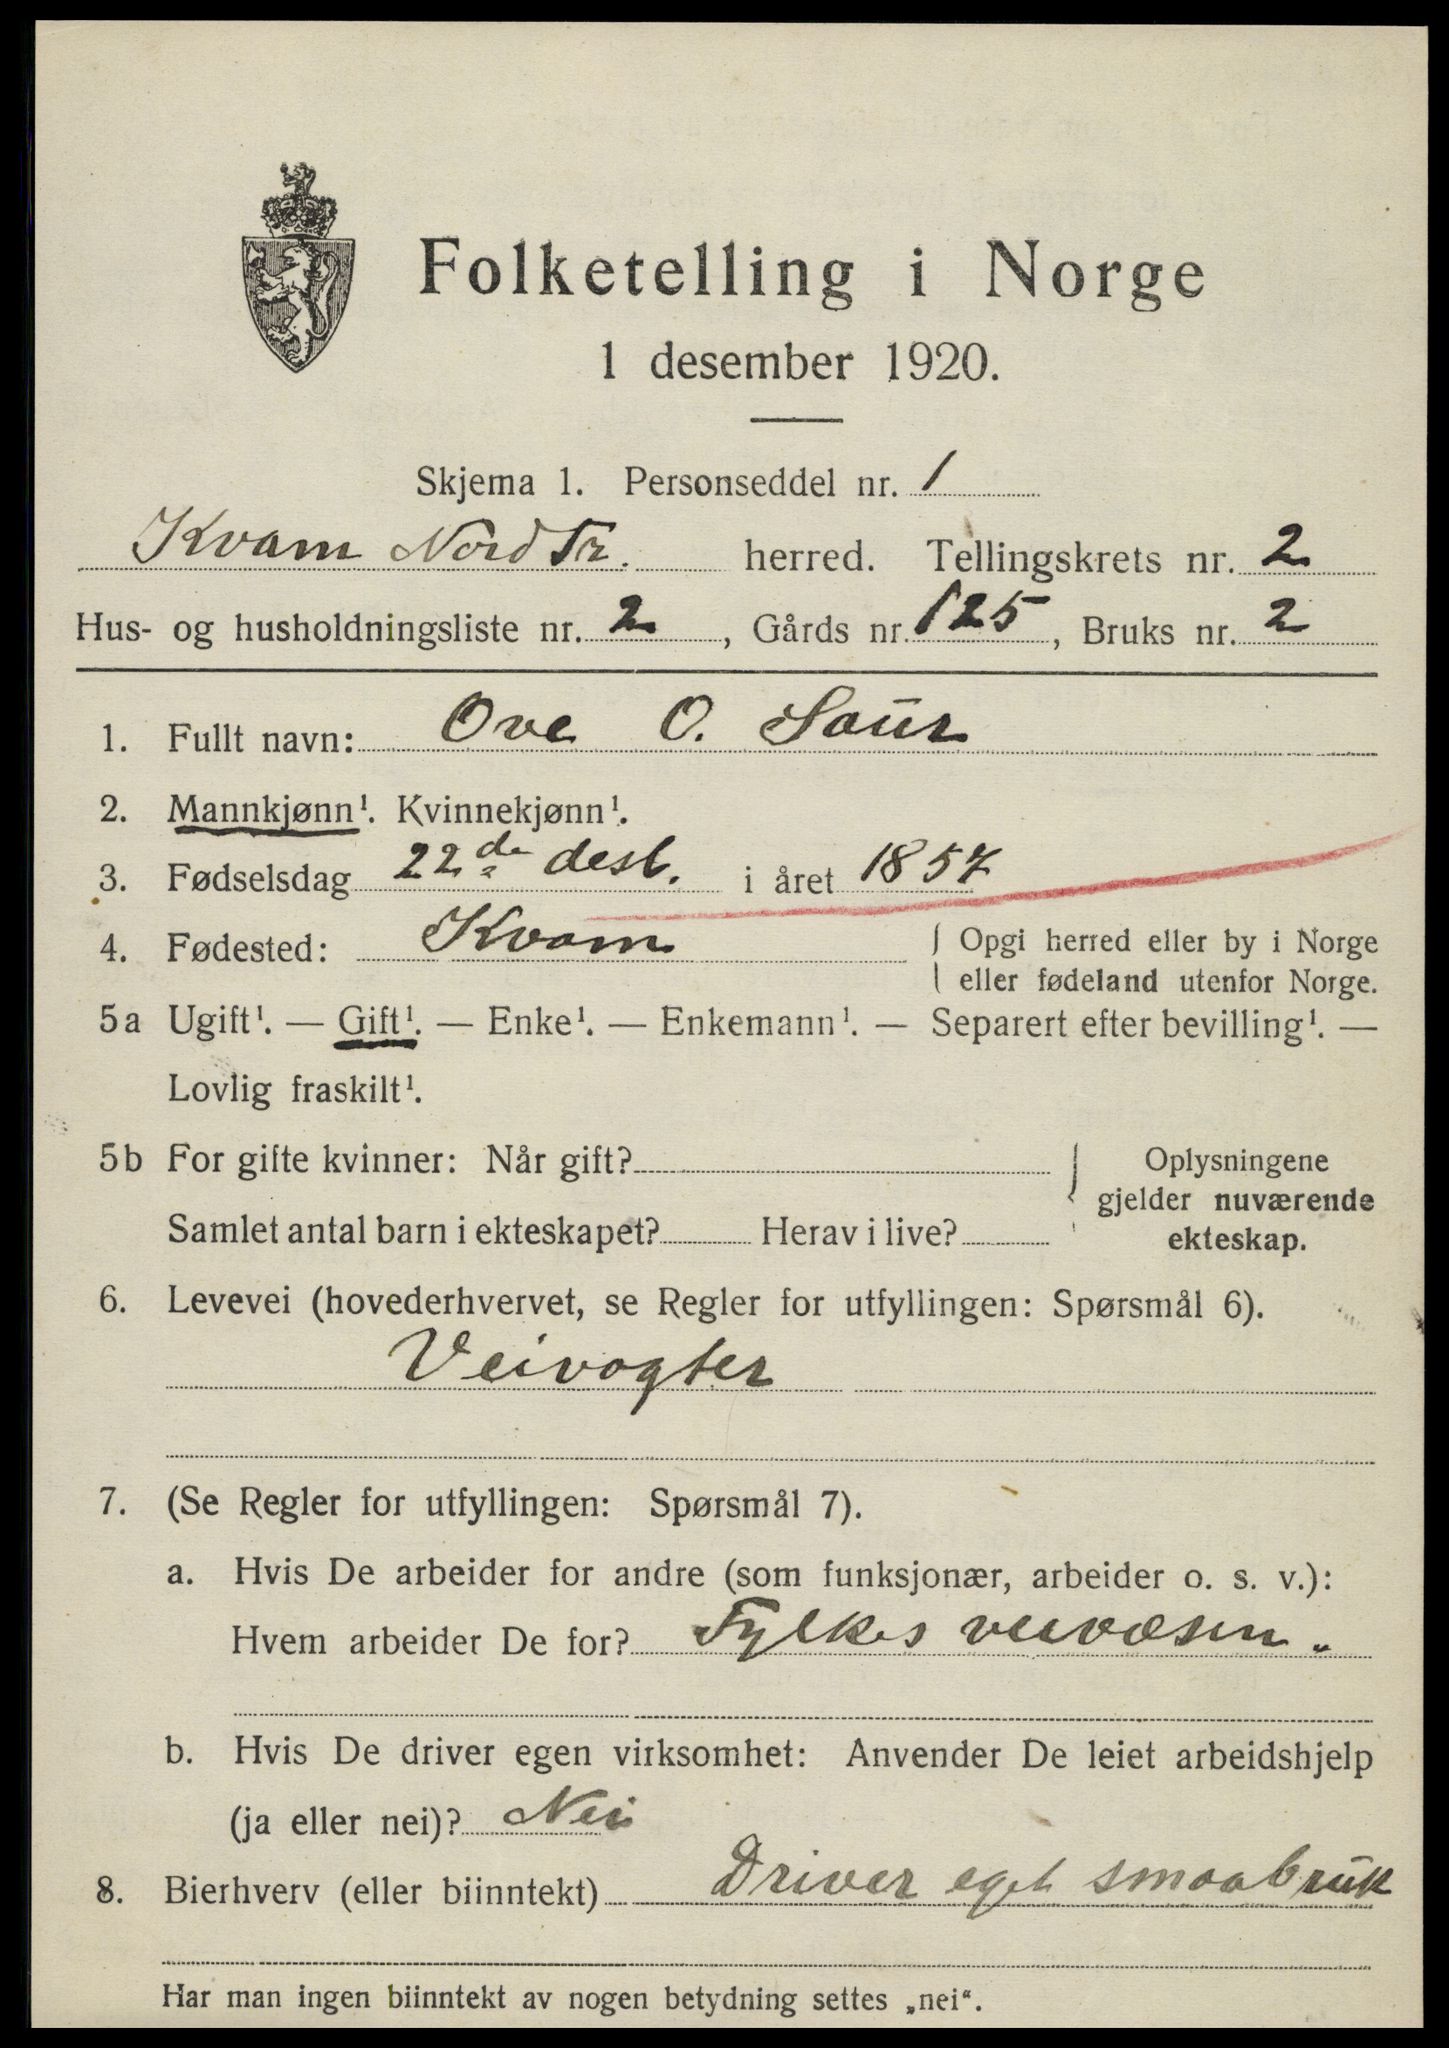 Folketelling i Norge
1 desember 1920.
Skjema 1. Personseddel nr. 1
Kvam Nord Tr. herred. Tellingskrets nr. 2
Hus- og husholdningsliste nr. 2, Gårds nr. 125, Bruks nr. 2
1. Fullt navn: Ove O. Saur
2. Mannkjønn¹. Kvinnekjønn¹.
3. Fødselsdag 22de desb. i året 1857
4. Fødested: Kvam { Opgi herred eller by i Norge
eller fødeland utenfor Norge.
5a Ugift¹. — Gift¹. — Enke¹. — Enkemann¹. — Separert efter bevilling¹. —
Lovlig fraskilt¹.
5b For gifte kvinner: Når gift? } Oplysningene
gjelder nuværende
Samlet antal barn i ekteskapet? Herav i live? ekteskap.
6. Levevei (hovederhvervet, se Regler for utfyllingen: Spørsmål 6).
Veivogter
7. (Se Regler for utfyllingen: Spørsmål 7).
a. Hvis De arbeider for andre (som funksjonær, arbeider o. s. v.):
Hvem arbeider De for? Fylkes veivæsen.
b. Hvis De driver egen virksomhet: Anvender De leiet arbeidshjelp
(ja eller nei)? Nei
8. Bierhverv (eller biinntekt) Driver eget smaabruk
Har man ingen biinntekt av nogen betydning settes „nei“.